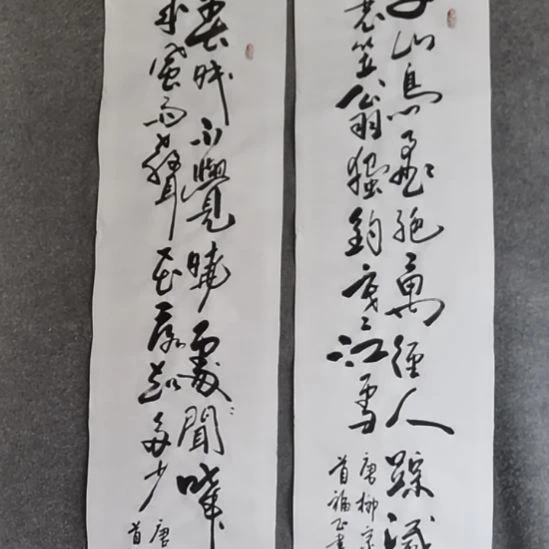 千山鳥飛絕萬徑人踪滅
蓑笠翁獨釣寒江雪
唐柳宗
首福玉書
春眠不覺曉處處聞啼
來風雨聲花落知多少
唐
首